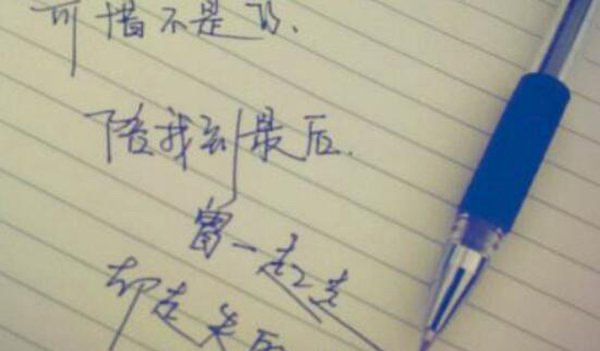 可惜不是你、
陪我到最后.
曾一起走
却走失